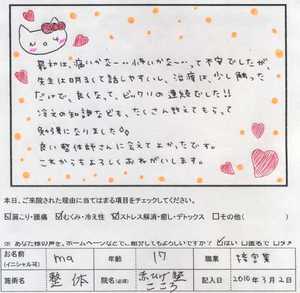 最初は、痛いかな～…怖いかな～…って不安でしたが、
先生は明るくて話しやすいし、治療は、少し触った
だけで、良くなって、ビックリの連続でした!!
冷えの知識なども、たくさん教えてもらって
勉強になりました。
良い整体師さんに会えて良かったです。
これからもよろしくおねがいします。
本日、ご来院された理由に当てはまる項目をチェックしてください。
☑肩こり・腰痛 ☑むくみ・冷え性 ☑ストレス解消・癒し・デトックス □その他( )
※あなた様の声を、ホームページなどで、紹介してもよろしいですか？ ☑はい □匿名 □ダメ
お名前 (イニシャル可) ma 年齢 17 職業 接客業
施術名 整体 院名(必須) 赤ひげ塾 こころ 記入日 2010年3月2日